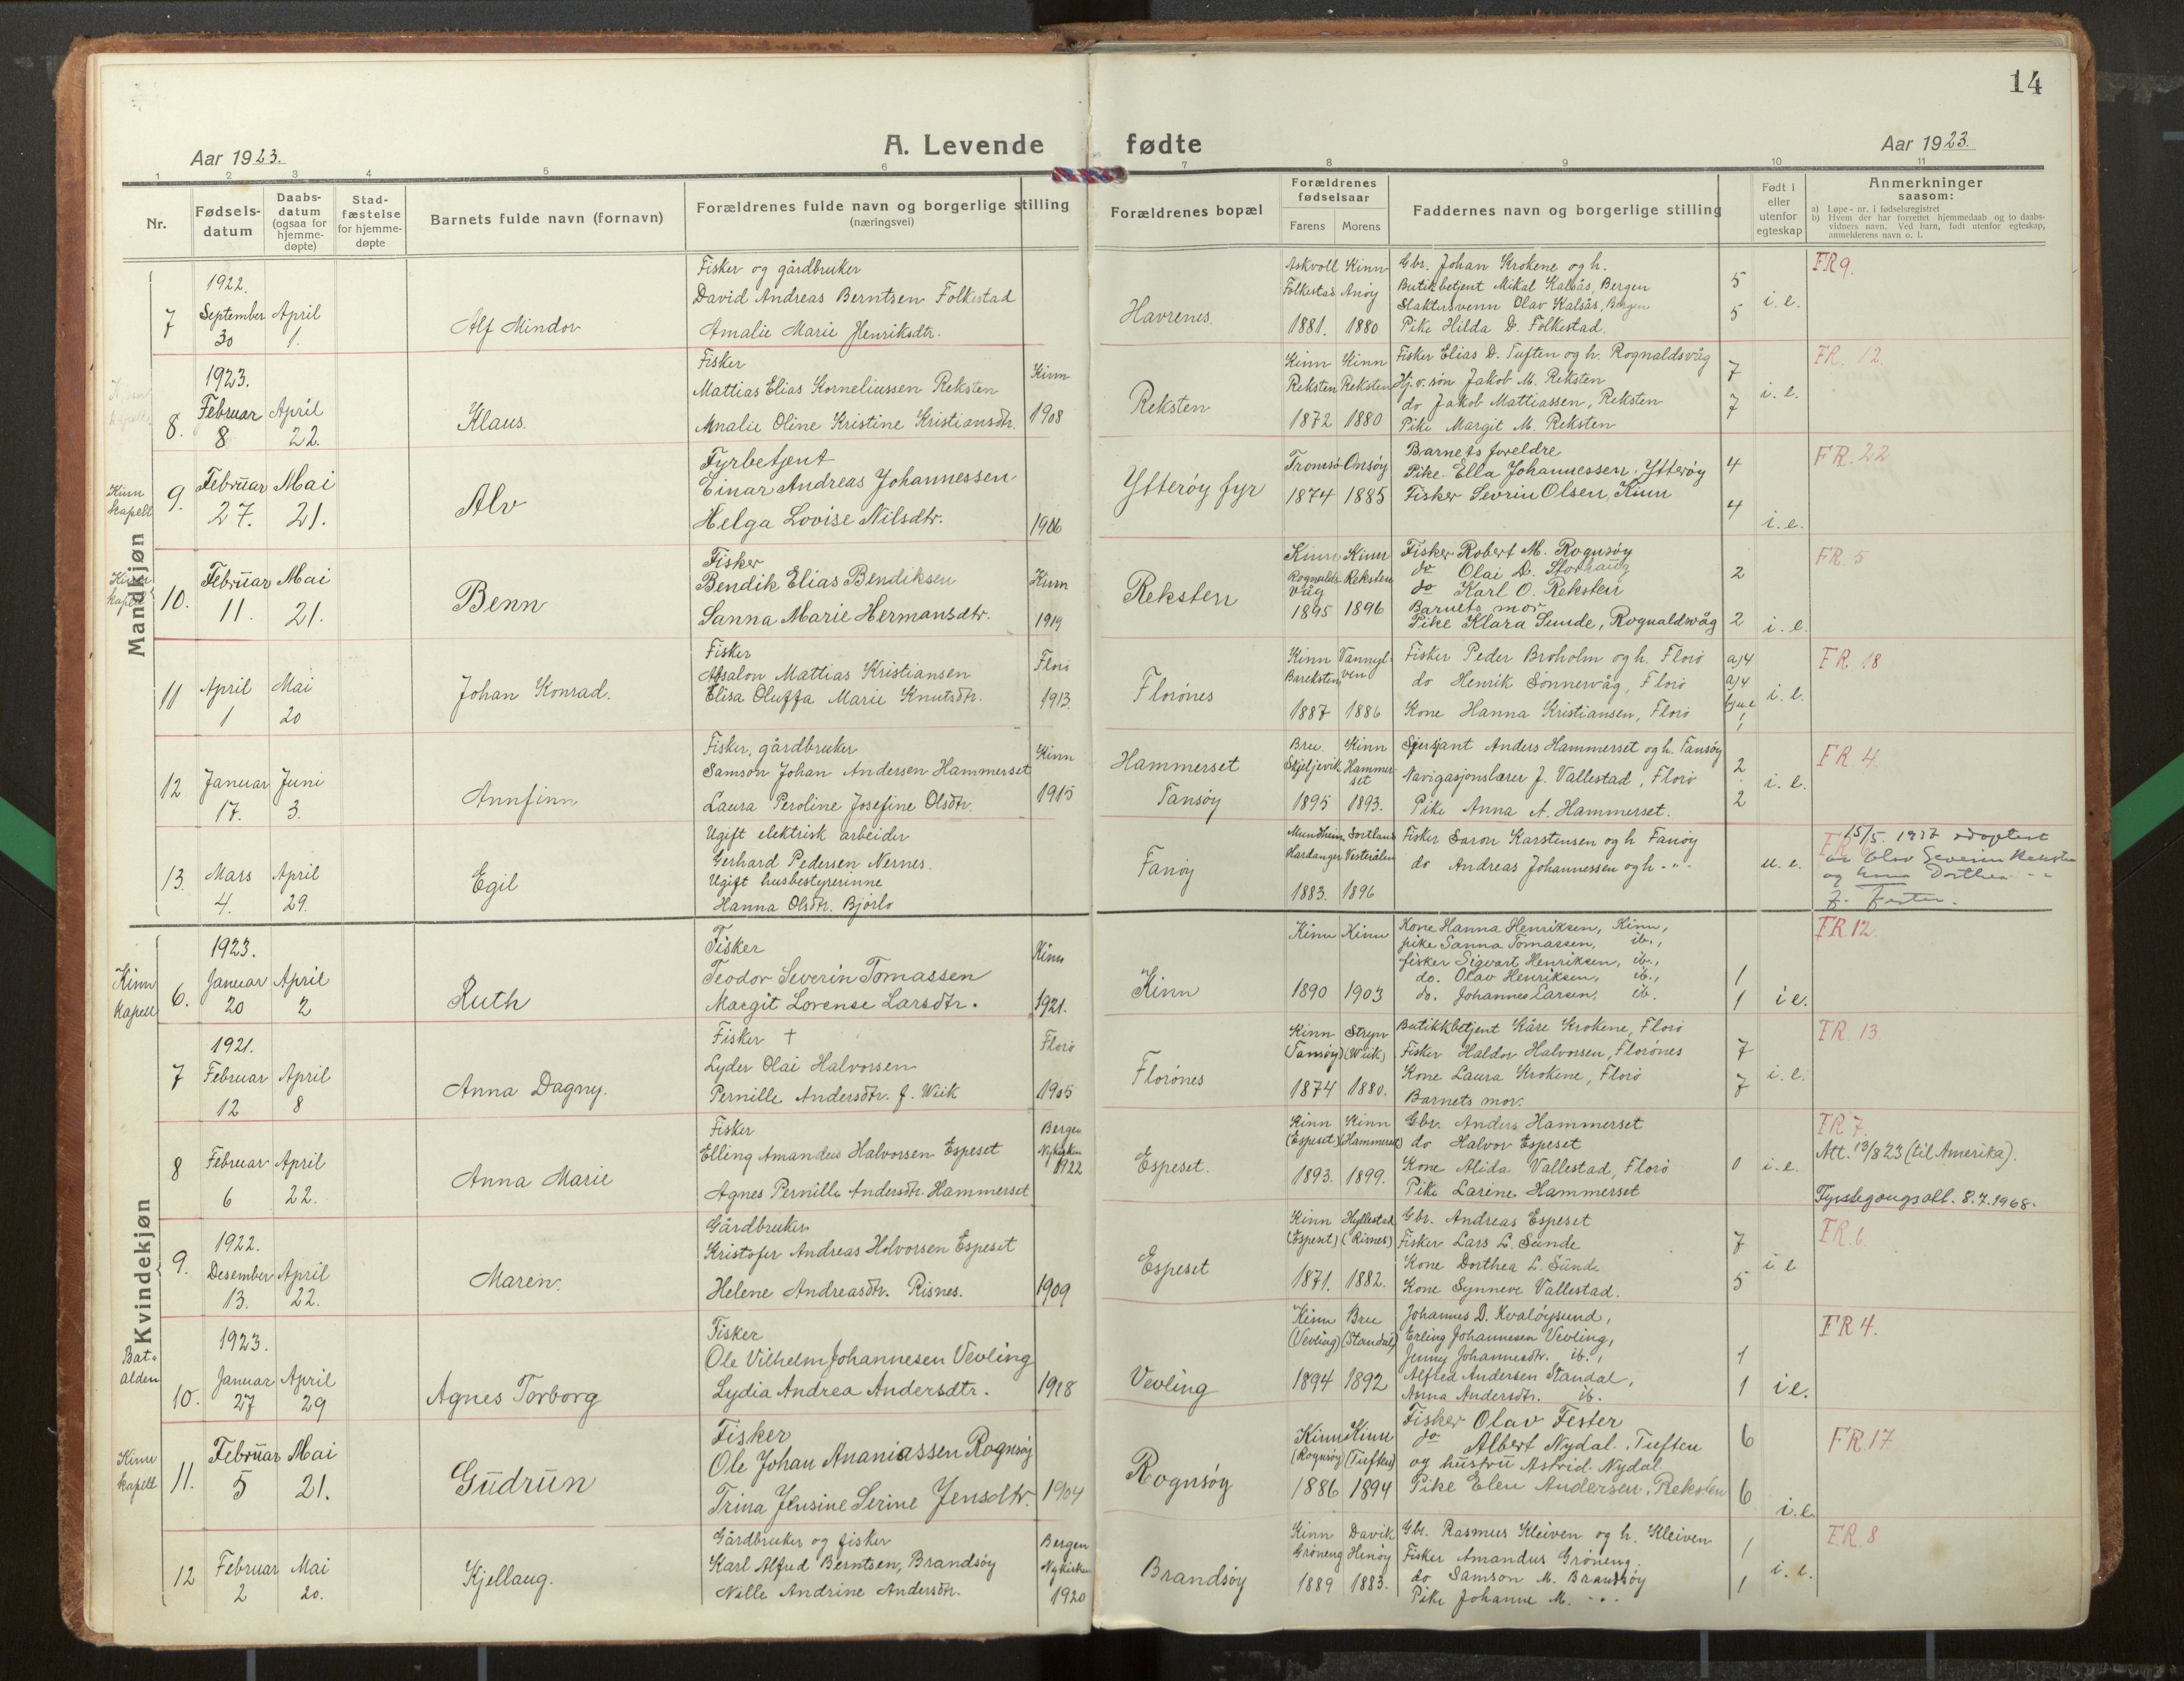 14
A. Levende fødte
Aar 1923.
Aar 1923.
1 2 3 4 5 6 7 8 9 10 11
Nr.
Fødsels-
datum
Daabs-
datum
(ogsaa for
hjemme-
døpte)
Stad-
fæstelse
for hjemme-
døpte
Barnets fulde navn (fornavn)
Forældrenes fulde navn og borgerlige stilling
(næringsvei)
Forældrenes bopæl
Forældrenes
fødselsaar
Farens Morens
Faddernes navn og borgerlige stilling
Født i
eller
utenfor
egteskap
Anmerkninger
saasom:
a) Løpe-nr. i fødselsregistret
b) Hvem der har forrettet hjemmedaab og to daabs-
vidners navn. Ved barn, født utenfor egteskap,
anmelderens navn o. l.
Mandkjøn
7
1922.
September April
30 1.
Alf Mindor
Fisker og gårdbruker
David Andreas Berntsen Folkestad
Amalie Marie Henriksdtr.
Havrenes.
Askvoll Kinn
Folkestad Anøy
1881. 1880
Gbr. Johan Krokene og h.
Butikbetjent Mikal Kalsås, Bergen
Slaktersvenn Olav Kalsås, Bergen
Pike Hilda D. Folkestad.
5
5
i. e.
FR 9.
Kinn
kapell
8.
1923.
Februar April
8 22.
Klaus.
Fisker
Mattias Elias Korneliussen Reksten
Amalie Oline Kristine Kristiansdtr.
Kinn
1908
Reksten
Kinn Kinn
Reksten Reksten
1872 1880
Fisker Elias D. Tuften og h. Rognaldsvåg
Hj.v. søn Jakob M. Reksten
do Jakob Mattiassen, Reksten
Pike Margit M. Reksten
7
7
i. e.
FR. 12.
Kinn
kapell
9.
Februar Mai
27. 21.
Alv
Fyrbetjent
Einar Andreas Johannessen
Helga Lovise Nilsdtr.
1906
Ytterøy fyr
Tromsø Onsøy
1874 1885
Barnets foreldre
Pike Ella Johannessen, Ytterøy
Fisker Sevrin Olsen, Kinn
4
4
i. e.
FR. 22
Kinn
kapell
10.
Februar Mai
11. 21.
Benn
Fisker
Bendik Elias Bendiksen
Sanna Marie Hermansdtr.
Kinn
1919
Reksten
Kinn Kinn
Rognalds- Reksten
våg
1895 1896
Fisker Robert M. Rognsøy
do Olai D. Storhaug
do Karl O. Reksten
Barnets mor
Pike Klara Sunde, Rognaldsvåg
2
2
i. e.
FR. 5
11
April Mai
1 20
Johan Konrad.
Fisker
Absalon Mattias Kristiansen
Elisa Oluffa Marie Knutsdtr.
Florø
1913.
Florønes
Kinn Vannyl-
Bareksten ven
1887 1886
Fisker Peder Broholm og h. Florø
do Henrik Sønnervåg, Florø
Kone Hanna Kristiansen, Florø
a) 4
a) 4
i. e.
FR. 18
12
Januar Juni
17. 3.
Annfinn
Fisker, gårdbruker
Samson Johan Andersen Hammerset
Laura Peroline Josefine Olsdtr.
Kinn
1915
Hammerset
Tansøy
Bru. Kinn
Skjeljevik Hammer-
set
1895 1893.
Sjersjant Anders Hammerset og h. Tansøy
Navigasjonslærer J. Vallestad, Florø
Pike Anna A. Hammerset.
2
2
i. e.
FR 4.
13.
Mars April
4. 29.
Egil
Ugift elektrisk arbeider
Gerhard Pedersen Nernes.
Ugift husbestyrerinne
Hanna Olsdtr. Bjørlo
Fanøy
Mundheim Sortland
Hardanger Vesterålen
1883. 1896
Fisker Saron Karstensen og h Fanøy
do Andreas Johannessen og h - " -
u. e.
15/5. 1937 adoptert
av Olav Severin Reksten
og kona Dorthea - "
f. Fester.
Kvindekjøn
Kinn
kapell
6.
1923.
Januar April
20 2
Ruth
Fisker
Teodor Severin Tomassen
Margit Lorense Larsdtr.
Kinn
1921.
Kinn
Kinn Kinn
1890 1903
Kone Hanna Henriksen, Kinn,
pike Sanna Tomassen, ib.,
fisker Sigvart Henriksen, ib.,
do. Olav Henriksen, ib.,
do. Johannes Larsen, ib.
1
1
i e.
FR 12.
7
1921.
Februar April
12 8
Anna Dagny.
Fisker †
Lyder Olai Halvorsen
Pernille Andersdtr. f. Wiik
Florø
1905
Florønes
Kinn Stryn
(Tansøy) (Wiik)
1874 1880.
Butikkbetjent Kåre Krokene, Florø
Fisker Haldor Halvorsen, Florønes
Kone Laura Krokene, Florø
Barnets mor.
7
7
i. e.
FR. 13.
8
Februar April
6 22.
Anna Marie
Fisker
Elling Amandus Halvorsen Espeset
Agnes Pernille Andersdtr. Hammerset
Bergen
Nykirken
1922
Espeset.
Kinn Kinn
(Espeset) (Hammerset)
1893. 1899.
Gbr. Anders Hammerset
do Halvor Espeset
Kone Alida Vallestad, Florø
Pike Larine Hammerset
0
i. e.
FR 7.
Att. 13/8 23 (til Amerika).
Fyrstegongsatt. 8.7.1968.
9.
1922.
Desember April
13. 22.
Maren.
Gårdbruker
Kristofer Andreas Halvorsen Espeset
Helene Andreasdtr. Risnes.
1909
Espeset
Kinn Hyllestad
(Espeset) (Risnes)
1871. 1882.
Gbr. Andreas Espeset
Fisker Lars L. Sunde
Kone Dorthea L. Sunde
Kone Synneve Vallestad.
7
5
i e
FR. 6.
Bat-
alden
10.
1923.
Januar April
27 29
Agnes Torborg
Fisker
Ole Vilhelm Johannesen Vevling
Lydia Andrea Andersdtr.
1918
Vevling
Kinn Bru
(Vevling) (Standal)
1894 1892
Johannes D. Kvaløysund,
Erling Johannesen Vevling,
Jenny Johannesdtr. ib.,
Alfred Andersen Standal,
Anna Andersdtr. ib.
1
1
i e.
FR 4.
Kinn
kapell
11.
Februar Mai
5 21.
Gudrun
Fisker
Ole Johan Ananiassen Rognsøy
Trina Jensine Serine Jensdtr.
1904
Rognsøy
Kinn Kinn
(Rognsøy) (Tuften)
1886 1894
Fisker Olav Fester
do Albert Nydal, Tuften
og hustru Astrid Nydal
Pike Elen Andersen, Reksten
6
6
i. e.
FR. 17
12
Februar Mai
2 20.
Kjellaug.
Gårdbruker og fisker
Karl Alfred Berntsen, Brandsøy
Nille Andrine Andersdtr.
Bergen
Nykirken
1920
Brandsøy
Kinn Davik
Grøneng Henøy
1889 1883.
Gbr. Rasmus Kleiven og h. Kleiven
Fisker Amandus Grøneng.
do Samson M. Brandsøy
Pike Johanne M. - " -
1
1
i. e.
FR. 8